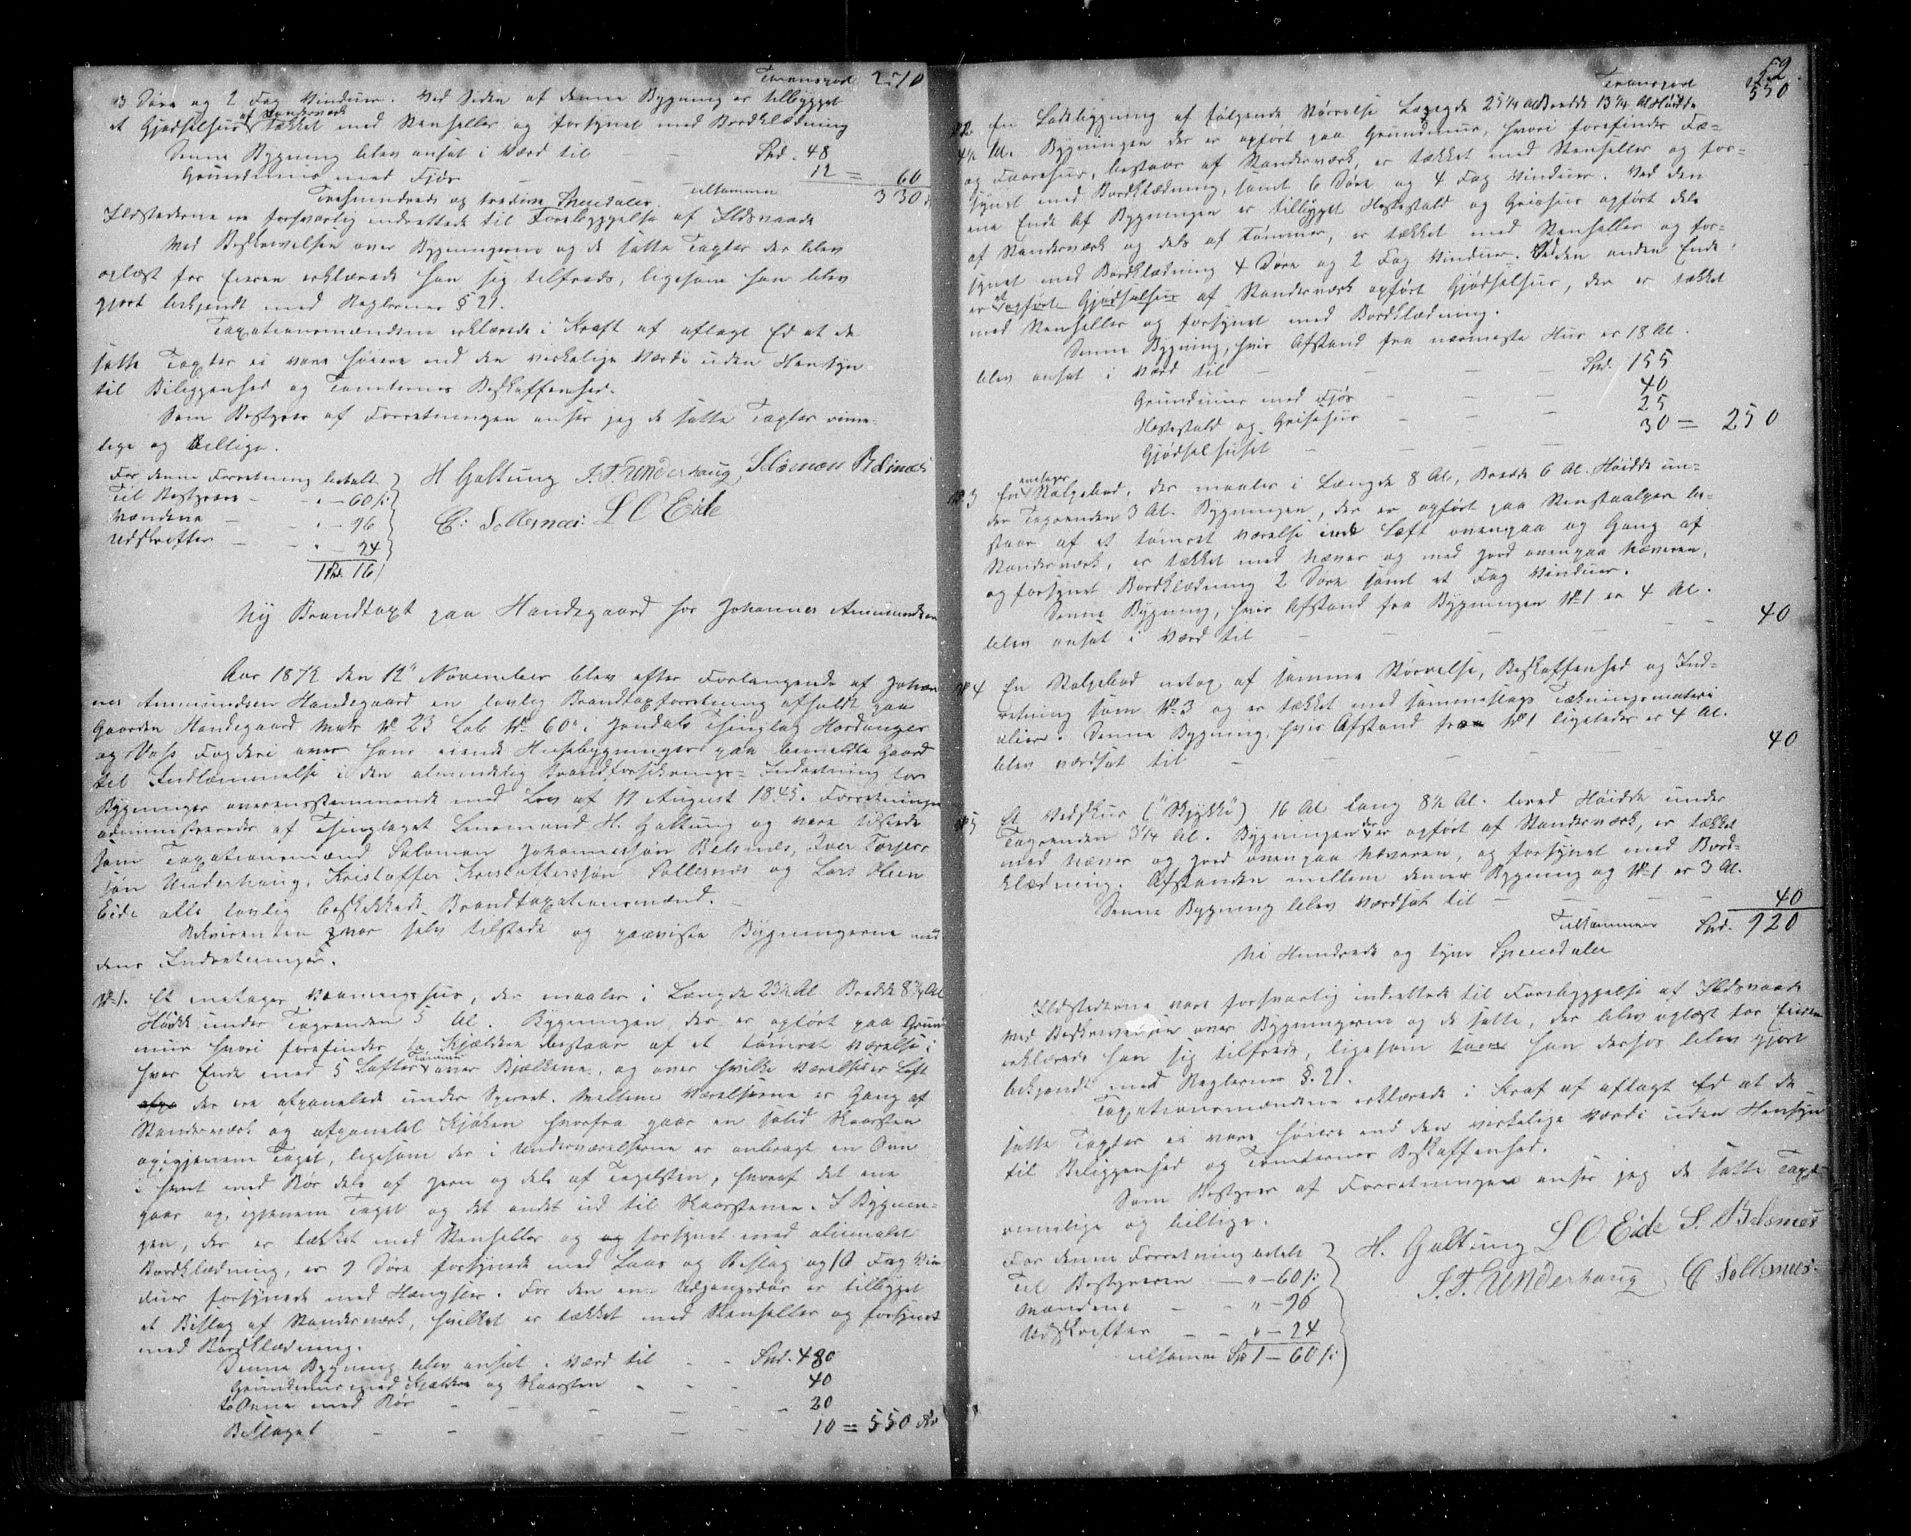 Transport 270
3 Døre og 2 Fag Vinduer. Ved Siden af denne Bygning er tilbygget
af Standerværk
et Gjødselhus tækket med Stenheller og forsynet med Bordklædning
Denne Bygning blev ansat i Værd til Spd. 48
Grundmuur med Fjøs 12 = 60
tilsammen 330
Trehundrede og tredive Speciedaler.
Ildstederne ere forsvarlig indrettede til Forebyggelse af Ildsvaade
Med Beskrivelsen over Bygningerne og de satte Taxter der blev
oplæst for Eieren erklærede han sig tilfreds, ligesom han blev
gjort bekjendt med Reglernes § 21.
Taxationsmændene erklærede i Kraft af aflagt Ed at de
satte Taxter ei vare høiere end den virkelige Værdi uden Hensyn
til Beliggenhed og Tomternes Beskaffenhed.
Som Bestyrer af Forretningen anser jeg de satte Taxter rime-
lige og billige.
For denne Forretning betalt
Til Bestyrer " – 60 ß
Mændene " – 96
Udskrifter " – 24
1 Spd. 16
H Galtung J. T. Underhaug, Salomon Belsnæs
C: Sollesnæs: L O Eide
Ny Brandtaxt paa Handegaard for Johannes Ammundsen
Aar 1872 den 12te November blev efter Forlangende af Johan-
nes Ammundsen Handegaard en lovlig Brandtaxforretning afholdt paa
Gaarden Handegaard Matr No 23 Løb No 60a i Jondals Thinglag Hardanger
og Voss Fogderi over hans eiende Huusbygninger paa bemeldte Gaard
til Indlemmelse i den almindelig Brandforsikrings-Indretning for
Bygninger overensstemmende med Lov af 19 August 1845. Forretningen
administreredes af Thinglagets Lensmand H. Galtung og vare tilstede
som Taxationsmænd Salomon Johannessøn Belsnæs, Iver Torjers-
søn Underhaug, Kristoffer Kristofferssøn Sollesnæs og Lars Olsen
Eide alle lovlig beskikkede Brandtaxationsmænd.
Rekvirenten var selv tilstede og paaviste Bygningerne med
dens Indretninger.
No 1. Et enetages Vaaningshus, der maaler i Længde 23½ Al Bredde 8¾ Al
Høide under Tagrenden 5 Al. Bygningen der er opført paa Grund-
muur hvori forefindes to Kjældere bestaar af et tømret Værelse i
hver Ende med 5 Lofter Tømmer over Bjælkene, og over hvilke Værelser er Loft
der ere afpanelede under Sperret. Mellem Værelserne er Gang af
Standerværk og afpanelet Kjøken hvorfra gaar en solid Skorsten
op igjennem Taget, ligesom der i Underværelserne er anbragt en Ovn
i hvert med Rør dels af Jern og dels af Teglsten, hvoraf det ene
gaar op igjennem Taget og det andet ud til Skorstenen. I Bygnin-
gen, der er tækket med Stenheller og og forsynet med oliemalet
Bordklædning, er 9 Døre forsynede med Laas og Beslag og 10 Fag Vin-
duer forsynede med Hængsler. For den ene Udgangsdør er tilbygget
et Bislag af Standerværk, hvilket er tækket med Stenheller og forsynet
med Bordklædning.
Denne Bygning blev ansat i Værd til Spd. 480
Grundmuur med Kjældere og Skorsten 40
to Ovne med Rør 20
Bislaget 10 = 550 Spd
52
Transport 550
2. En Ladebygning af følgende Størrelse Længde 25¼ Al Bredde 13¼ Al Høide
4½ Al. Bygningen der er opført paa Grundmuur, hvori forefindes Fæ-
og Faarehus, bestaar af Standerværk, er tækket med Stenheller og for-
synet med Bordklædning, samt 6 Døre og 4 Fag Vinduer. Ved den
ene Ende af Bygningen er tilbygget Hestestald og Grisehus opført dels
af Standerværk og dels af Tømmer, er tækket med Stenheller og for-
synet med Bordklædning 4 Døre og 2 Fag Vinduer. Ved den anden Ende
er opført Gjødselhus af Standerværk opført Gjødselhus, der er tækket
med Stenheller og forsynet med Bordklædning.
Denne Bygning, hvis Afstand fra nærmeste Hus er 18 Al.
blev ansat i Værd til Spd. 155
Grundmuur med Fjøs 40
Hestestald og Grisehus 25
Gjødselhuset 30 = 250
No 3 En enetages Stolpebod, der maaler i Længde 8 Al, Bredde 6 Al. Høide un-
der Tagrenden 3 Al. Bygningen, der er opført paa Stenstaalper be-
staar af et tømret Værelse med Loft ovenpaa og Gang af
Standerværk, er tækket med Næver og med Jord ovenpaa Næveren,
og forsynet Bordklædning 2 Døre samt et Fag Vinduer.
Denne Bygning, hvis Afstand fra Bygningen No 1 er 4 Al.
blev ansat i Værd til 40
No 4 En Stolpebod netop af samme Størrelse, Beskaffenhed og Ind-
retning som No 3 og er tækket med sammeslags Tækningsmateri-
alier. Denne Bygning, hvis Afstand fra No 1 ligeledes er 4 Al.
blev værdsat til 40
No 5 Et Vedskur ("Skykkje") 16 Al lang 8½ Al. bred Høide under
Tagrenden 3¼ Al. Bygningen der er opført af Standerværk, er tækket
med Næver og Jord ovenpaa Næveren, og forsynet med Bord-
klædning. Afstanden mellem denne Bygning og No 1 er 3 Al.
Denne Bygning blev værdsat til 40
Tilsammen Spd. 920
Ni Hundrede og tyve Speciedaler
Ildstederne vare forsvarlig indrettede til Forebyggelse af Ildsvaade
Med Beskrivelsen over Bygningerne og de satte, der blev oplæst for Eieren
erklærede han sig tilfreds, ligesom han derhos blev gjort
bekjendt med Reglernes §. 21.
Taxationsmændene erklærede i Kraf af aflagt Ed at de
satte Taxter ei vare høiere end den virkelige Værdi uden Hensyn
til Beliggenhed og Tomternes Beskaffenhed.
Som Bestyrer af Forretningen anser jeg de satte Taxter
rimelige og billige.
For denne Forretning betalt
Til Bestyreren " – 60 ß
Mændene " – 96
Udskrifter " – 24
tilsammen Sp 1 – 60 ß
H. Galtung L O Eide S. Belsnæs
J. T. Underhaug C Sollesnæs